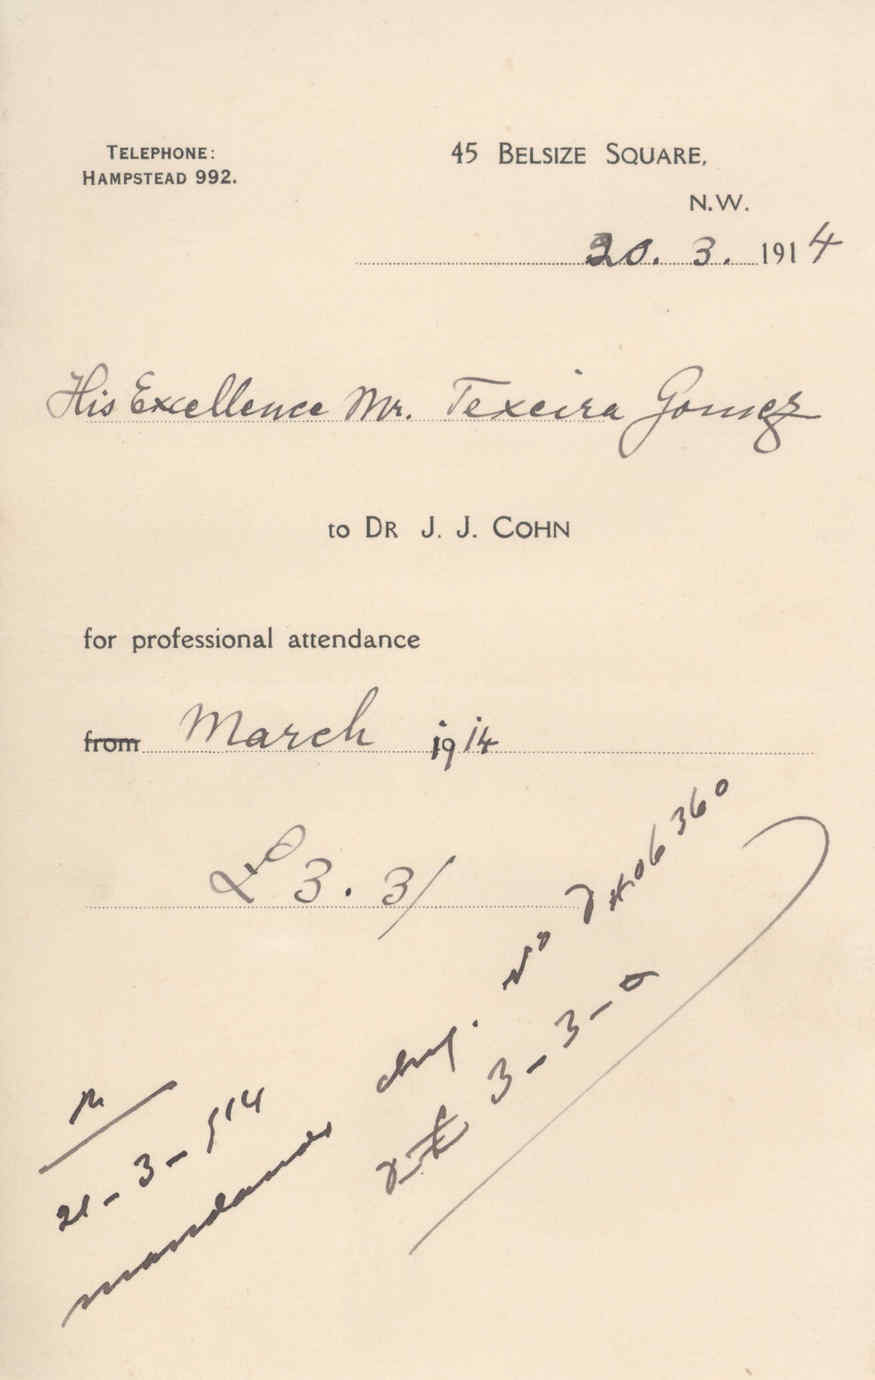 TELEPHONE:
HAMPSTEAD 992.
45 BELSIZE SQUARE,
N.W.
20. 3. 1914
His Excellence Mr. Texeira Gomez
to DR J. J. COHN
for professional attendance
from March 1914
£ 3. 3/
R
21-3-914
mandando chq. Nº
3-3-0